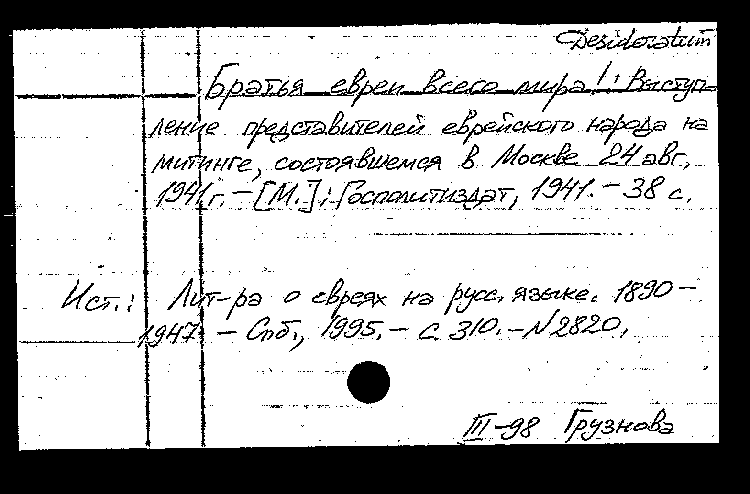 Desideratum
Братья евреи всего мира!: Выступ-
ление представителей еврейского народа на
митинге, состоявшемся в Москве 24 авг.
1941 г. – [М.]: Госполитиздат, 1941. – 38 с.
Ист.: Лит-ра о евреях на русс. языке. 1890 –
1947. – Спб., 1995. – С. 310. – N 2820.
III-98 Грузнова